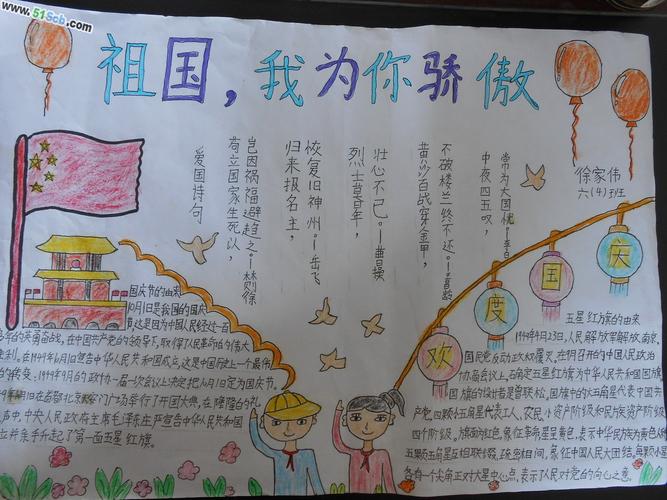 www.51Scb.com
祖国，我为你骄傲
徐家伟
六(4)班
爱国诗句
苟立国家生死以，
岂因祸福避趋之。——林则徐
归来报名主，
恢复旧神州。——岳飞
烈士暮年，
壮心不已。——曹操
黄沙百战穿金甲，
不破楼兰终不还。——
中夜四五叹，
常为大国忧。——李白
欢度国庆
国庆节的由来
10月1日是我国的国庆
节这是因为中国人民经过一百
多年的英勇奋战，在中国共产党的领导下，取得了人民革命的伟大
胜利。在1949年10月1日宣告中华人民共和国成立，这是中国历上一个最伟
的转变。1949年9月的政协一届一次会议上决定把10月1日定为国庆节。
10月1日在首都北京
门广场举行了开国大典，在隆隆的礼
声中，中央人民政府主席毛泽东庄严宣告中华人民共和国
立并亲手升起了第一面五星红旗。
五星红旗的由来
1949年4月23日，人民解放军解放南京，
国民党反动政权覆灭。在
召开的中国人民政治
协商会议上，
确定五星红旗为中华人民共和国国旗
国旗的设计者是曾联松，国旗中的大五角星代表中国共
产党，四颗小五角星代表工人、农民、小资产阶级和民族资产阶级
四个阶级。旗面为红色，象征革命，星呈黄色，表示中华民族为黄色人
五颗五角星互相联缀、疏密相间，象征中国人民大团结。每颗小星
各有一个尖角正对大星中心点，表示了人民对党的向心之意。